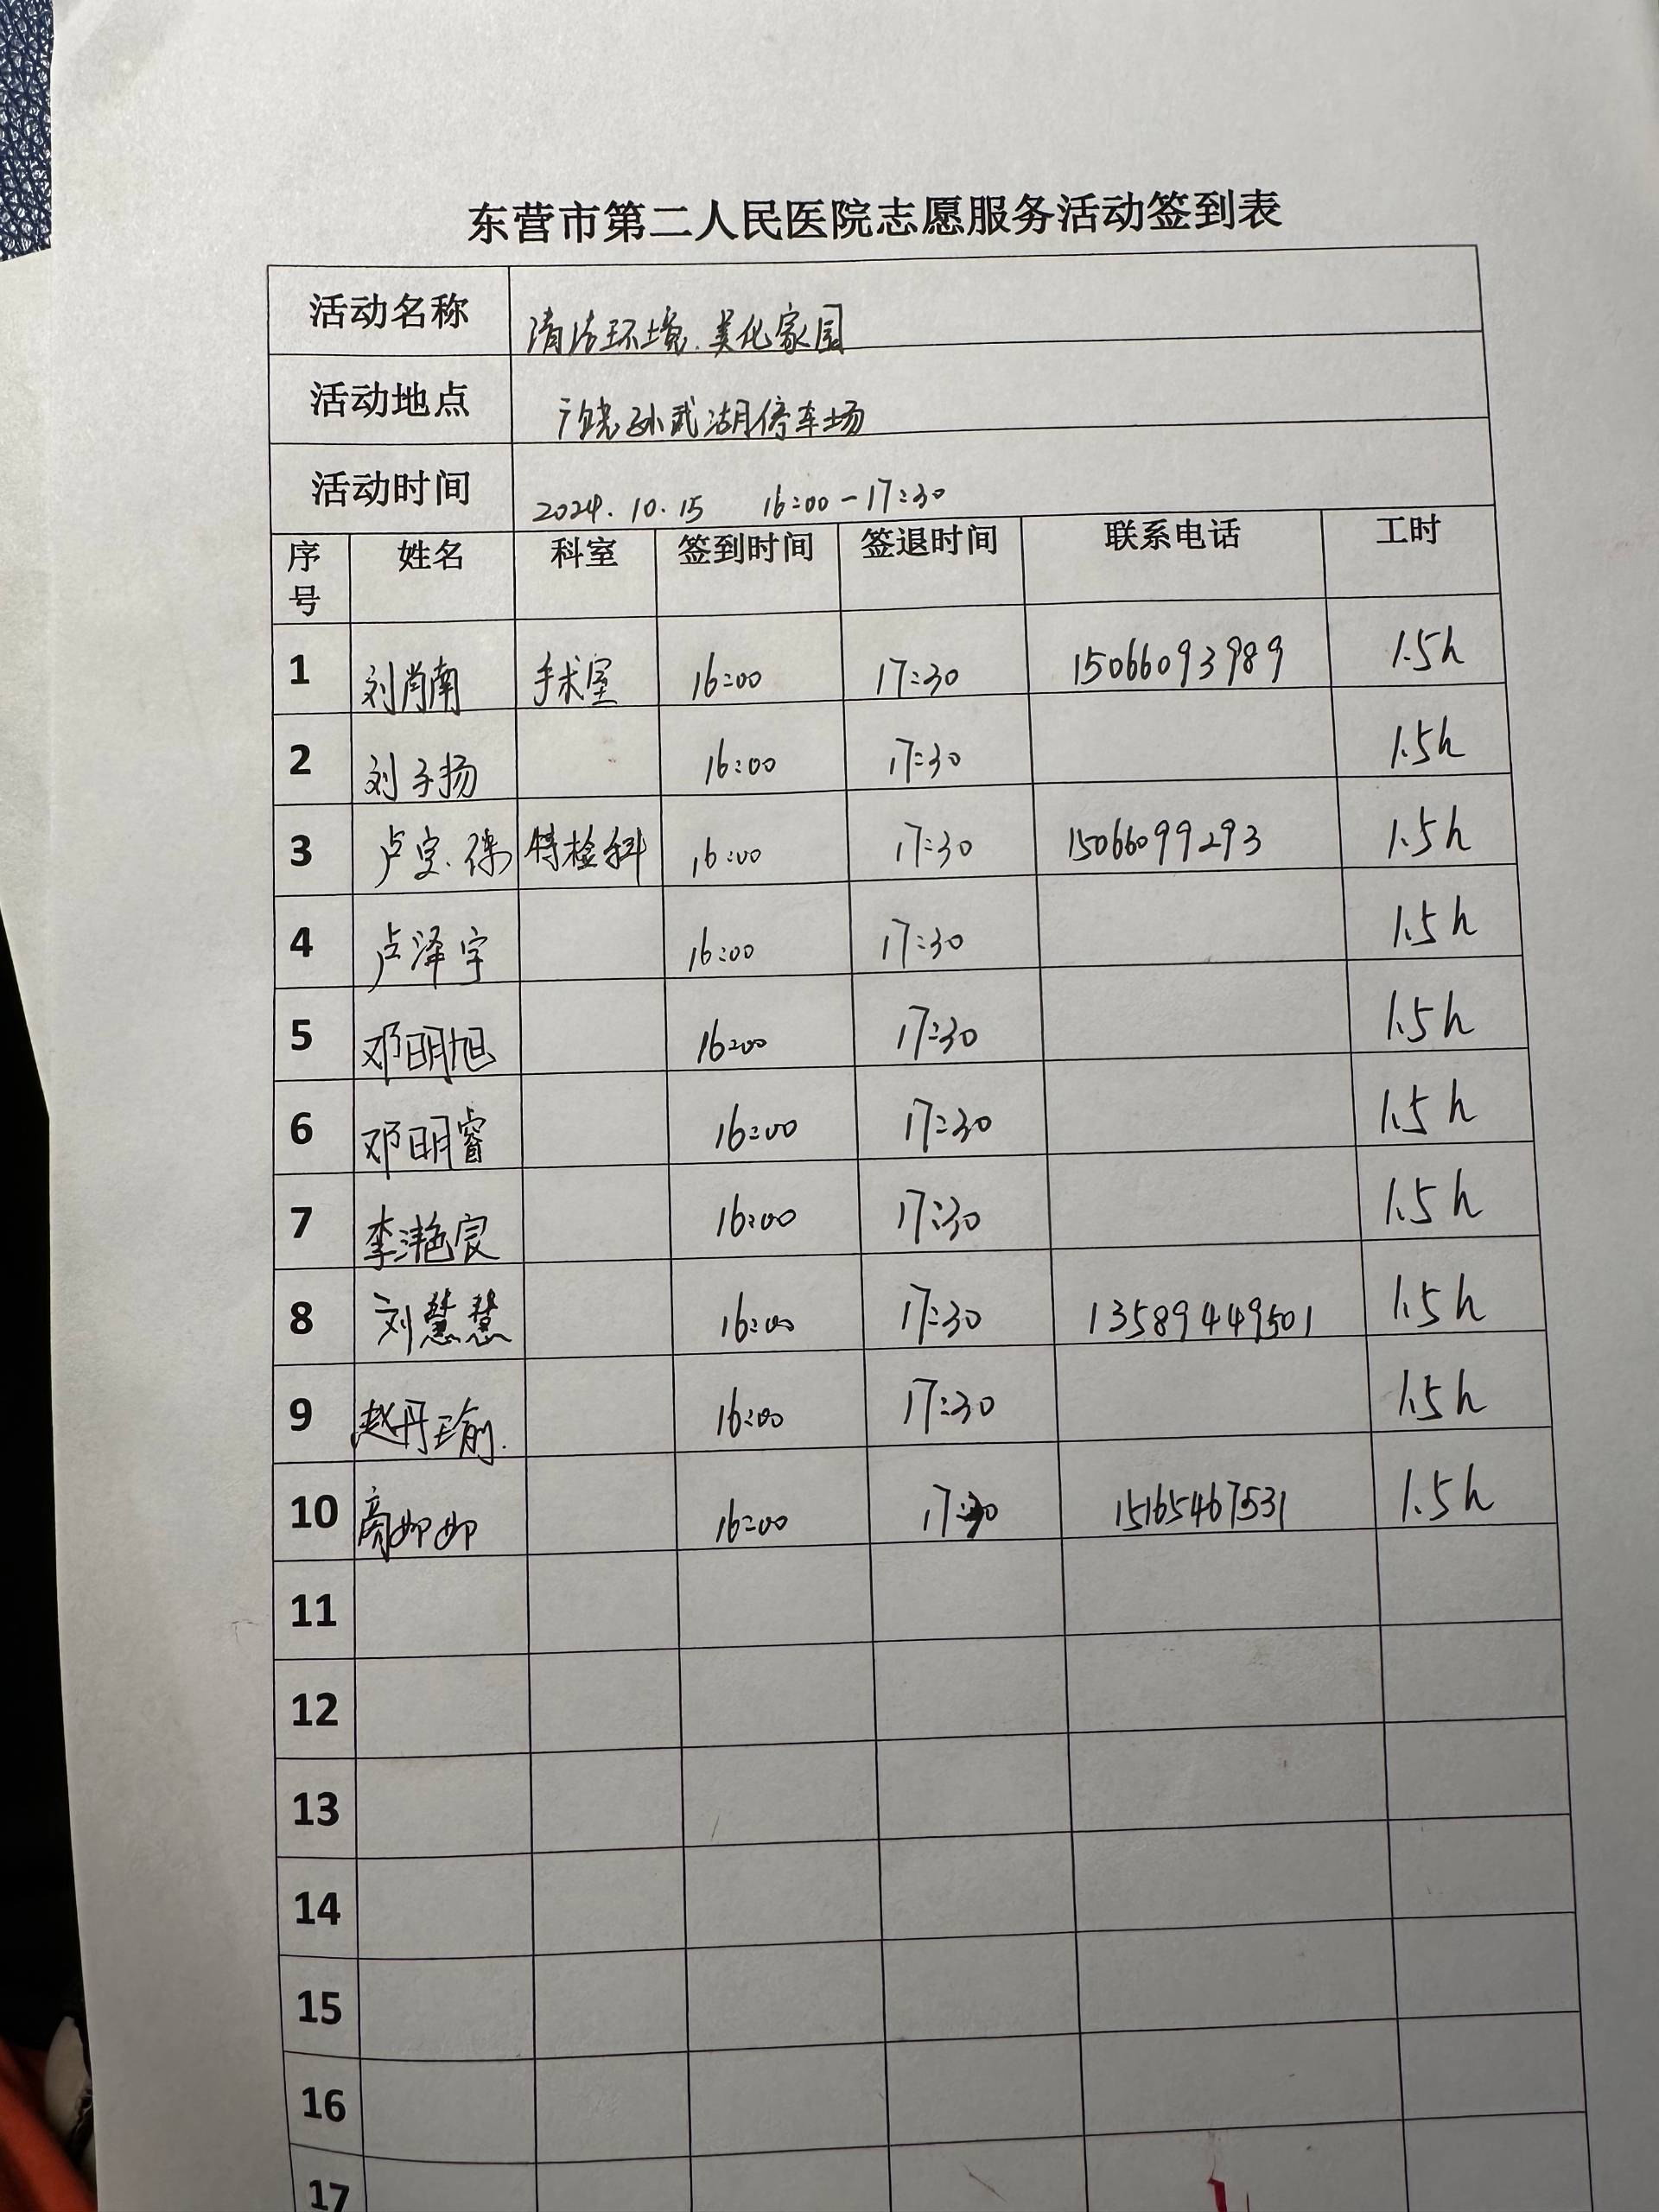 东营市第二人民医院志愿服务活动签到表
活动名称 清洁环境.美化家园
活动地点 广饶孙武湖停车场
活动时间 2024.10.15 16:00-17:30
序号 姓名 科室 签到时间 签退时间 联系电话 工时
1 刘肖南 手术室 16:00 17:30 15066093989 1.5h
2 刘子扬 16:00 17:30 1.5h
3 卢宝 特检科 16:00 17:30 15066099293 1.5h
4 卢泽宇 16:00 17:30 1.5h
5 邓明旭 16:00 17:30 1.5h
6 邓明睿 16:00 17:30 1.5h
7 李滟宸 16:00 17:30 1.5h
8 刘慧慧 16:00 17:30 13589449501 1.5h
9 赵丹瑜. 16:00 17:30 1.5h
10 16:00 17:30 15165467531 1.5h
11
12
13
14
15
16
17